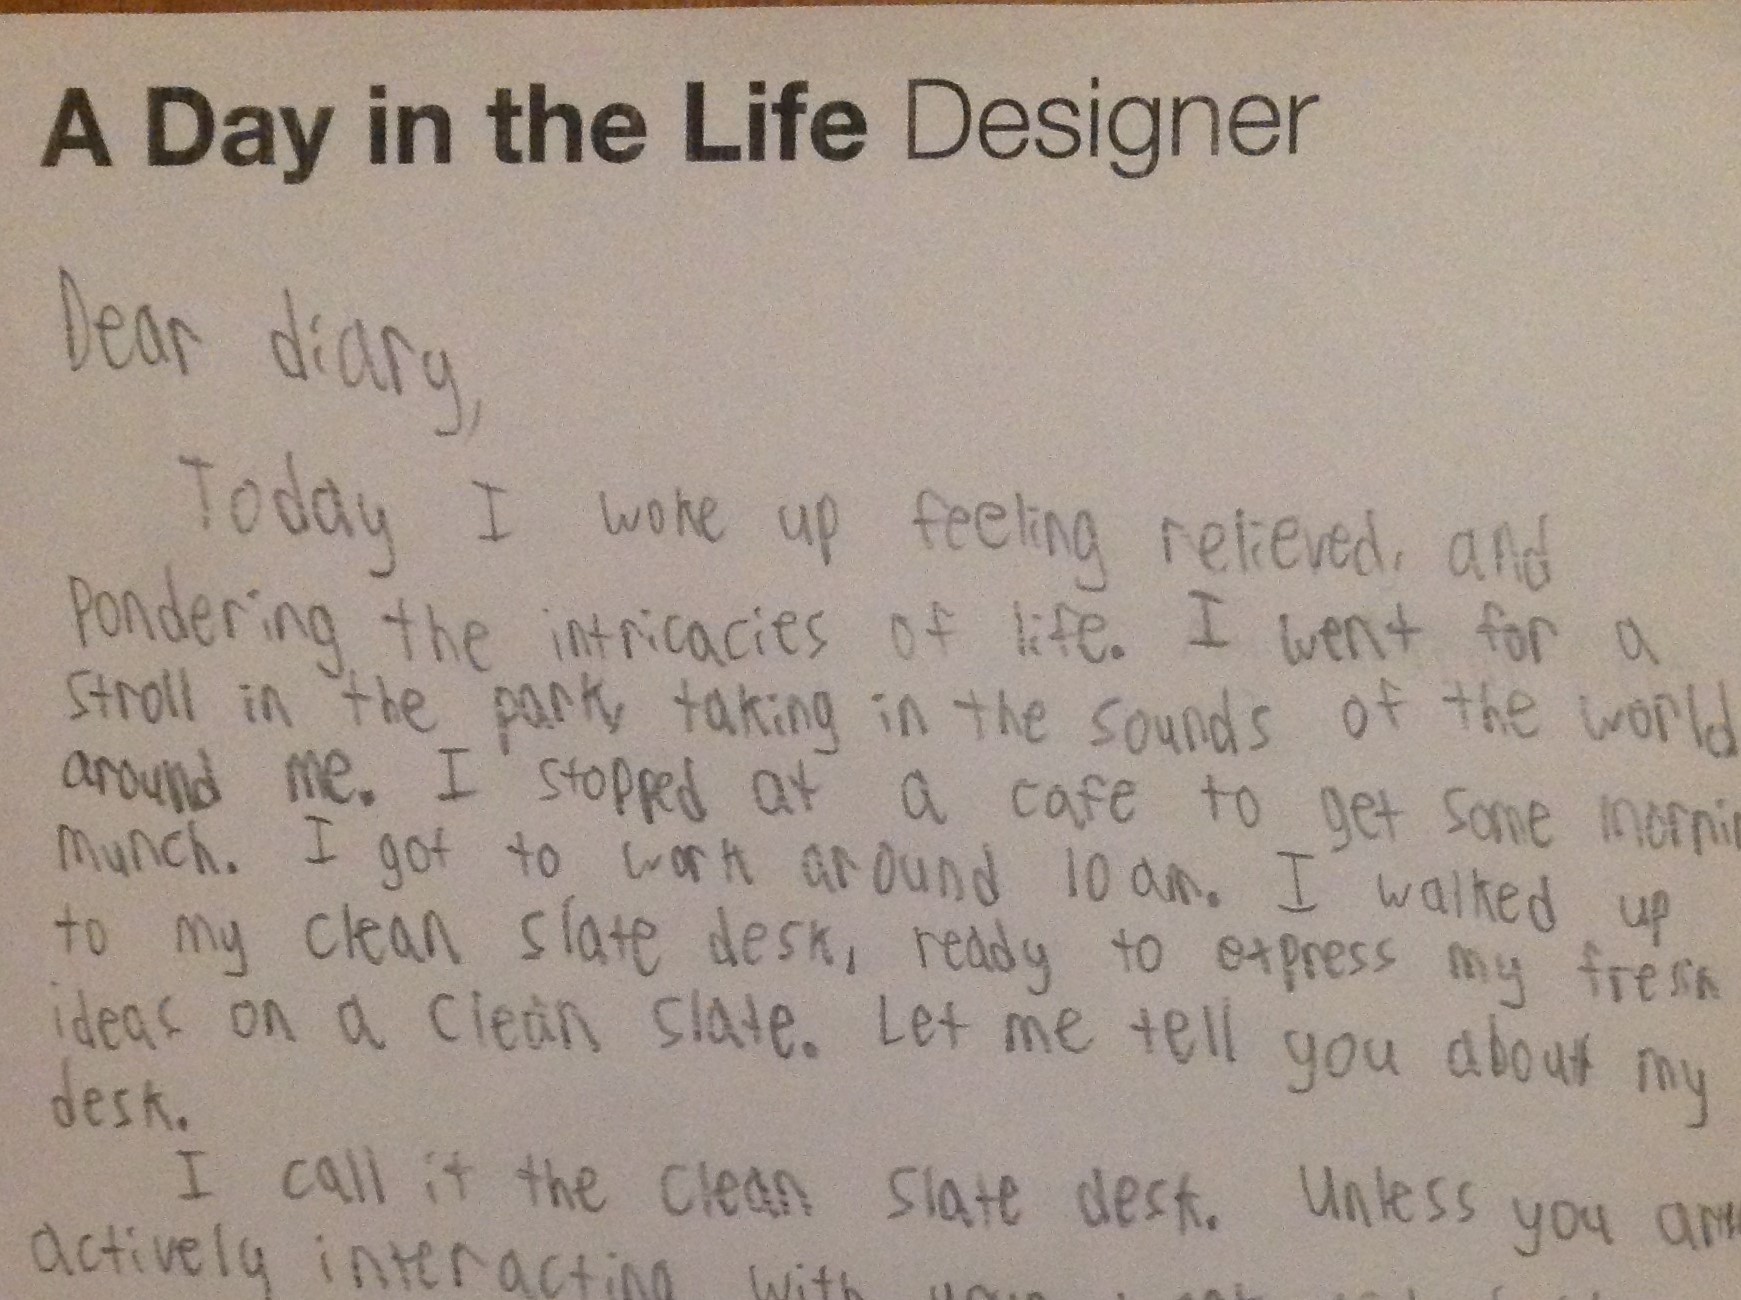 A Day in the Life Designer
Dear diary,
Today I woke up feeling relieved, and
pondering the intricacies of life. I went for a
stroll in the park, taking in the sounds of the world
around me. I stopped at a cafe to get some
munch. I got to work around 10 am. I walked up
to my clean slate desk, ready to express my fresh
ideas on a clean slate. Let me tell you about my
desk.
I call it the clean slate desk. Unless you
actively interacting with your